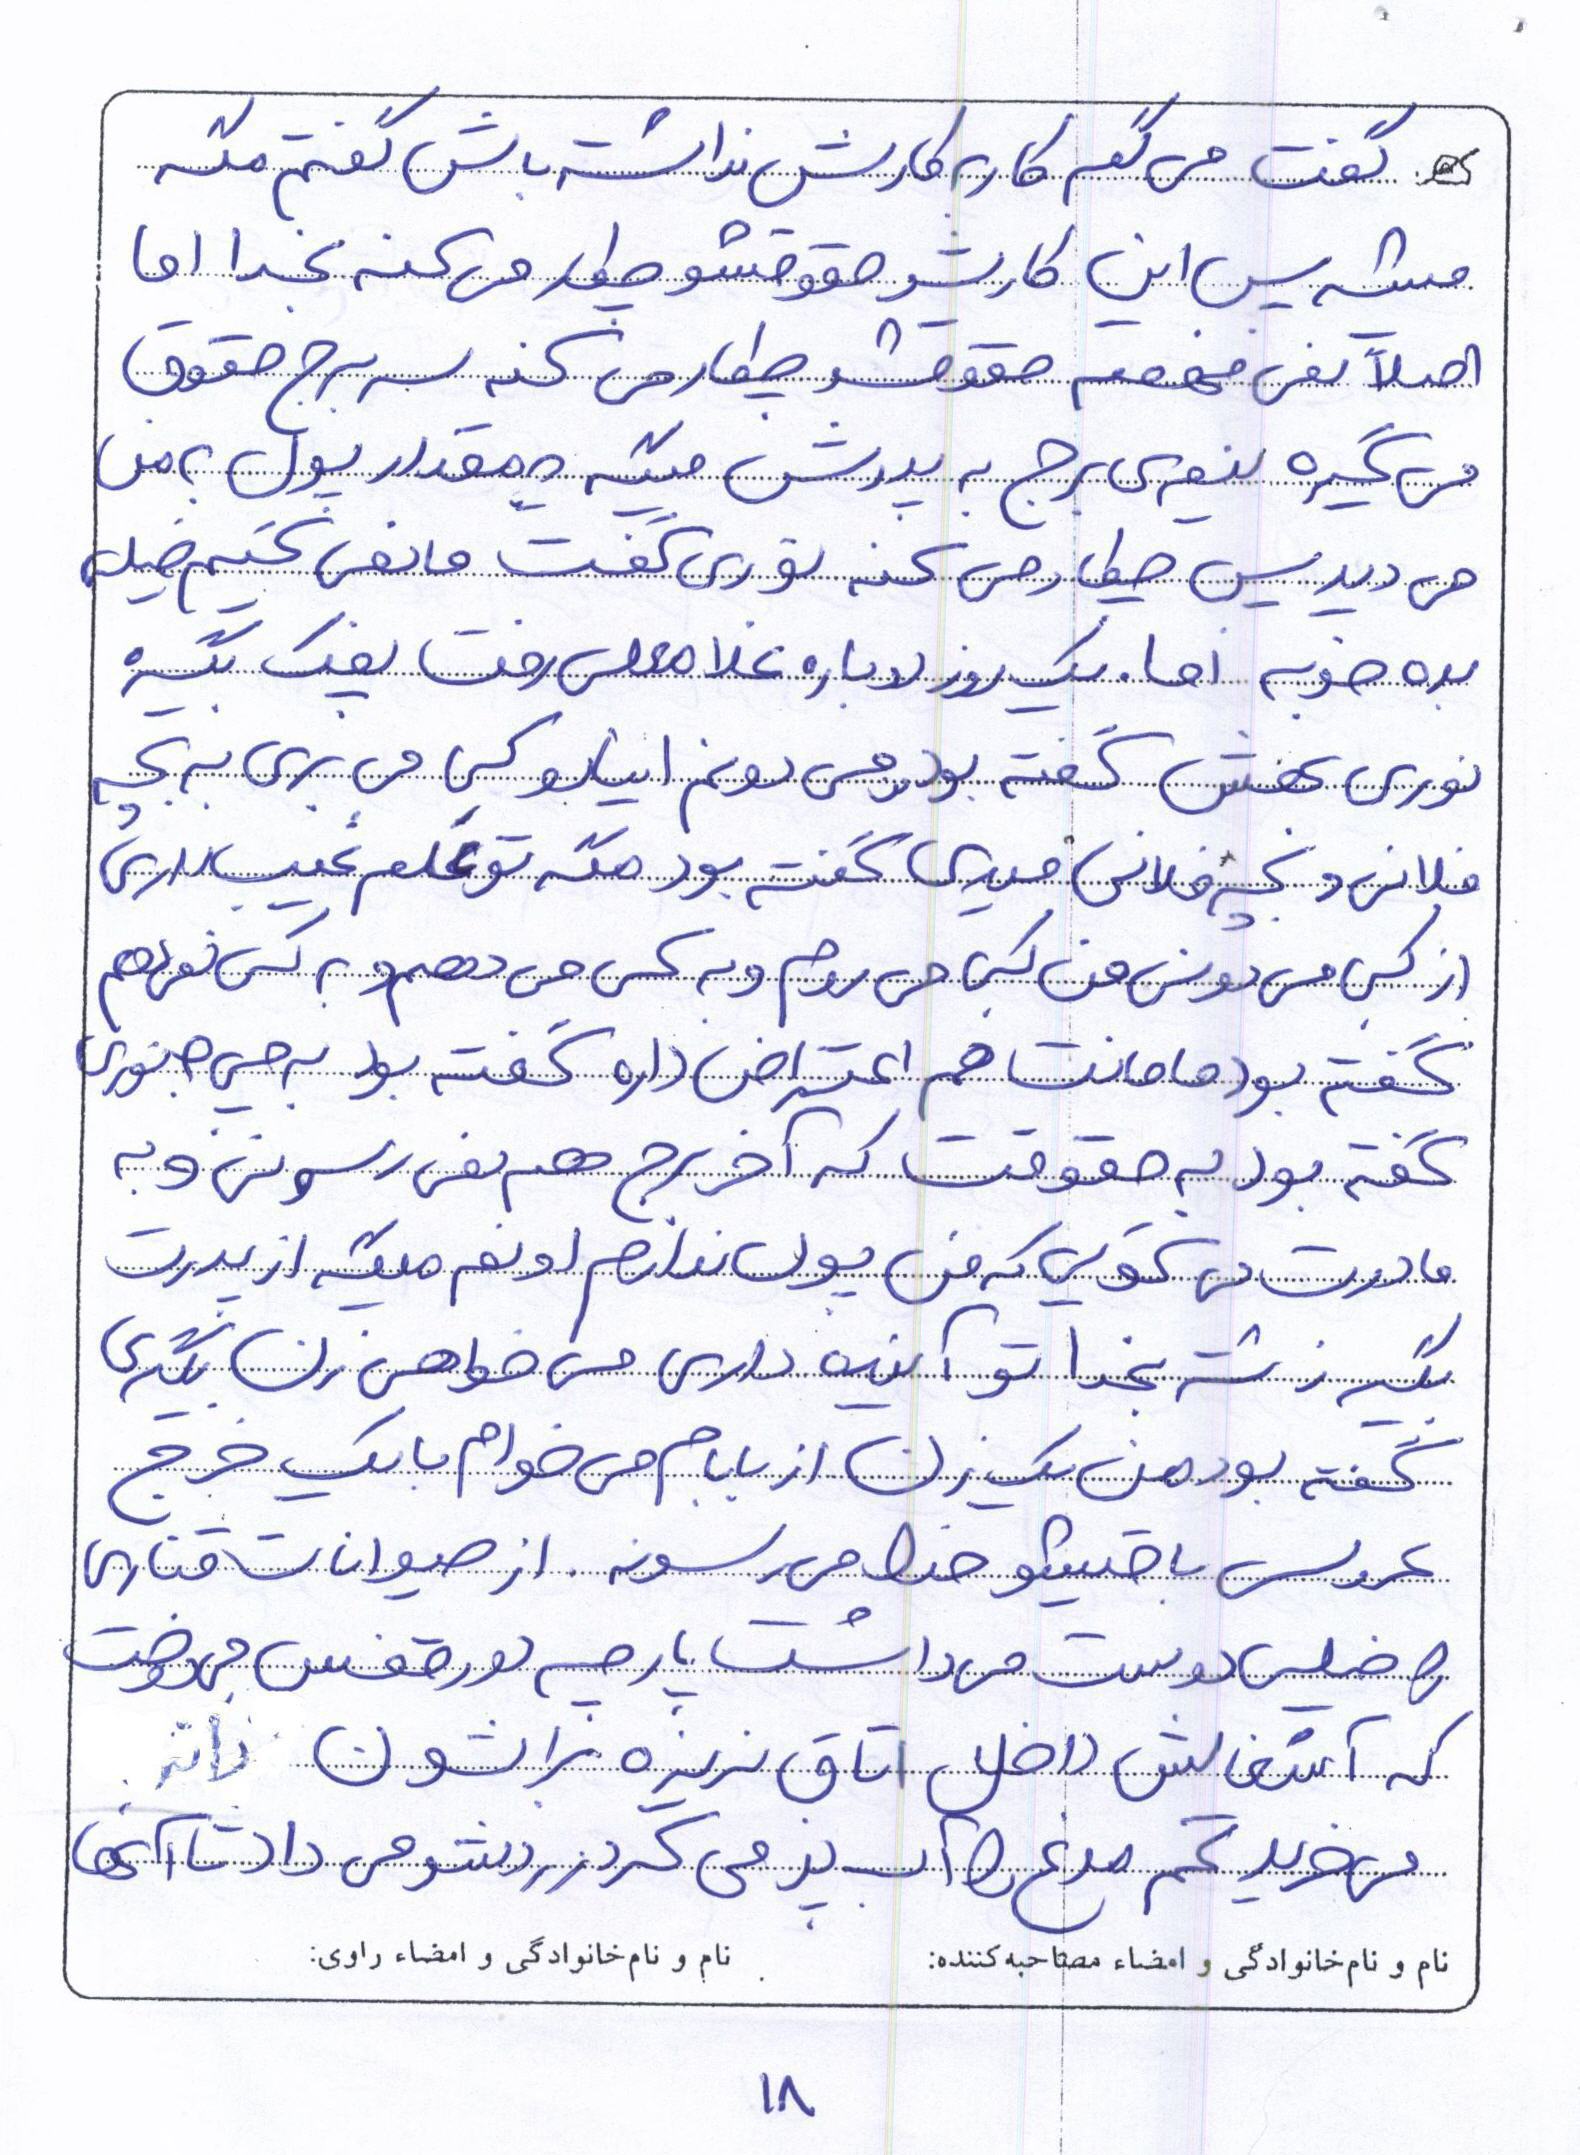 گفت می گم کاربکارش نداشته باش گفتم مگه
میشه پس این کارشو حقوقشو چیکار می کنه بخدا اما
اصلاً نمی فهمه حقوقشو چیکار می کنه سر برج حقوق
می گیره نیمه ی برج به پدرش میگه یه مقدار پول به من
می دید پس چیکار می کنه نوری گفت ما نمی گیم خیلی
بده خوبه اما. یک روز دوباره غلامعلی رفت پفک بگیره
نوری بهش گفته بود می دونم اینارو کجا می بری به بچه
فلانی و بچه فلانی میدی گفته بود مگه تو علم غیب داری
از کجا می دونی من کجا می روم و به کس می دهم و به کس نمی دهم
گفته بود مامانت هم اعتراض داره گفته بود به چی ؟ نوری
گفته بود به حقوقت که آخر برج هم نمی رسونی و به
مادرت می گویی که من پول ندارم اونم میگه از پدرت
بگیر زشته بخدا تو آینده داری می خواهی زن بگیری
گفته بود من یک زن از بابام می خوام با یک خرج
عروسی باقیشو خدا می رسونه. از حیوانات قناری
را خیلی دوست می داشت پارچه دور قفس می دوخت
که آشغالش داخل اتاق نریزه براشون دانه
می خرید تخم مرغ را آب پز می کرد زردیشو می داد تا آنها
نام و نام خانوادگی و امضاء مصاحبه کننده: نام و نام خانوادگی و امضاء راوی:
۱۸